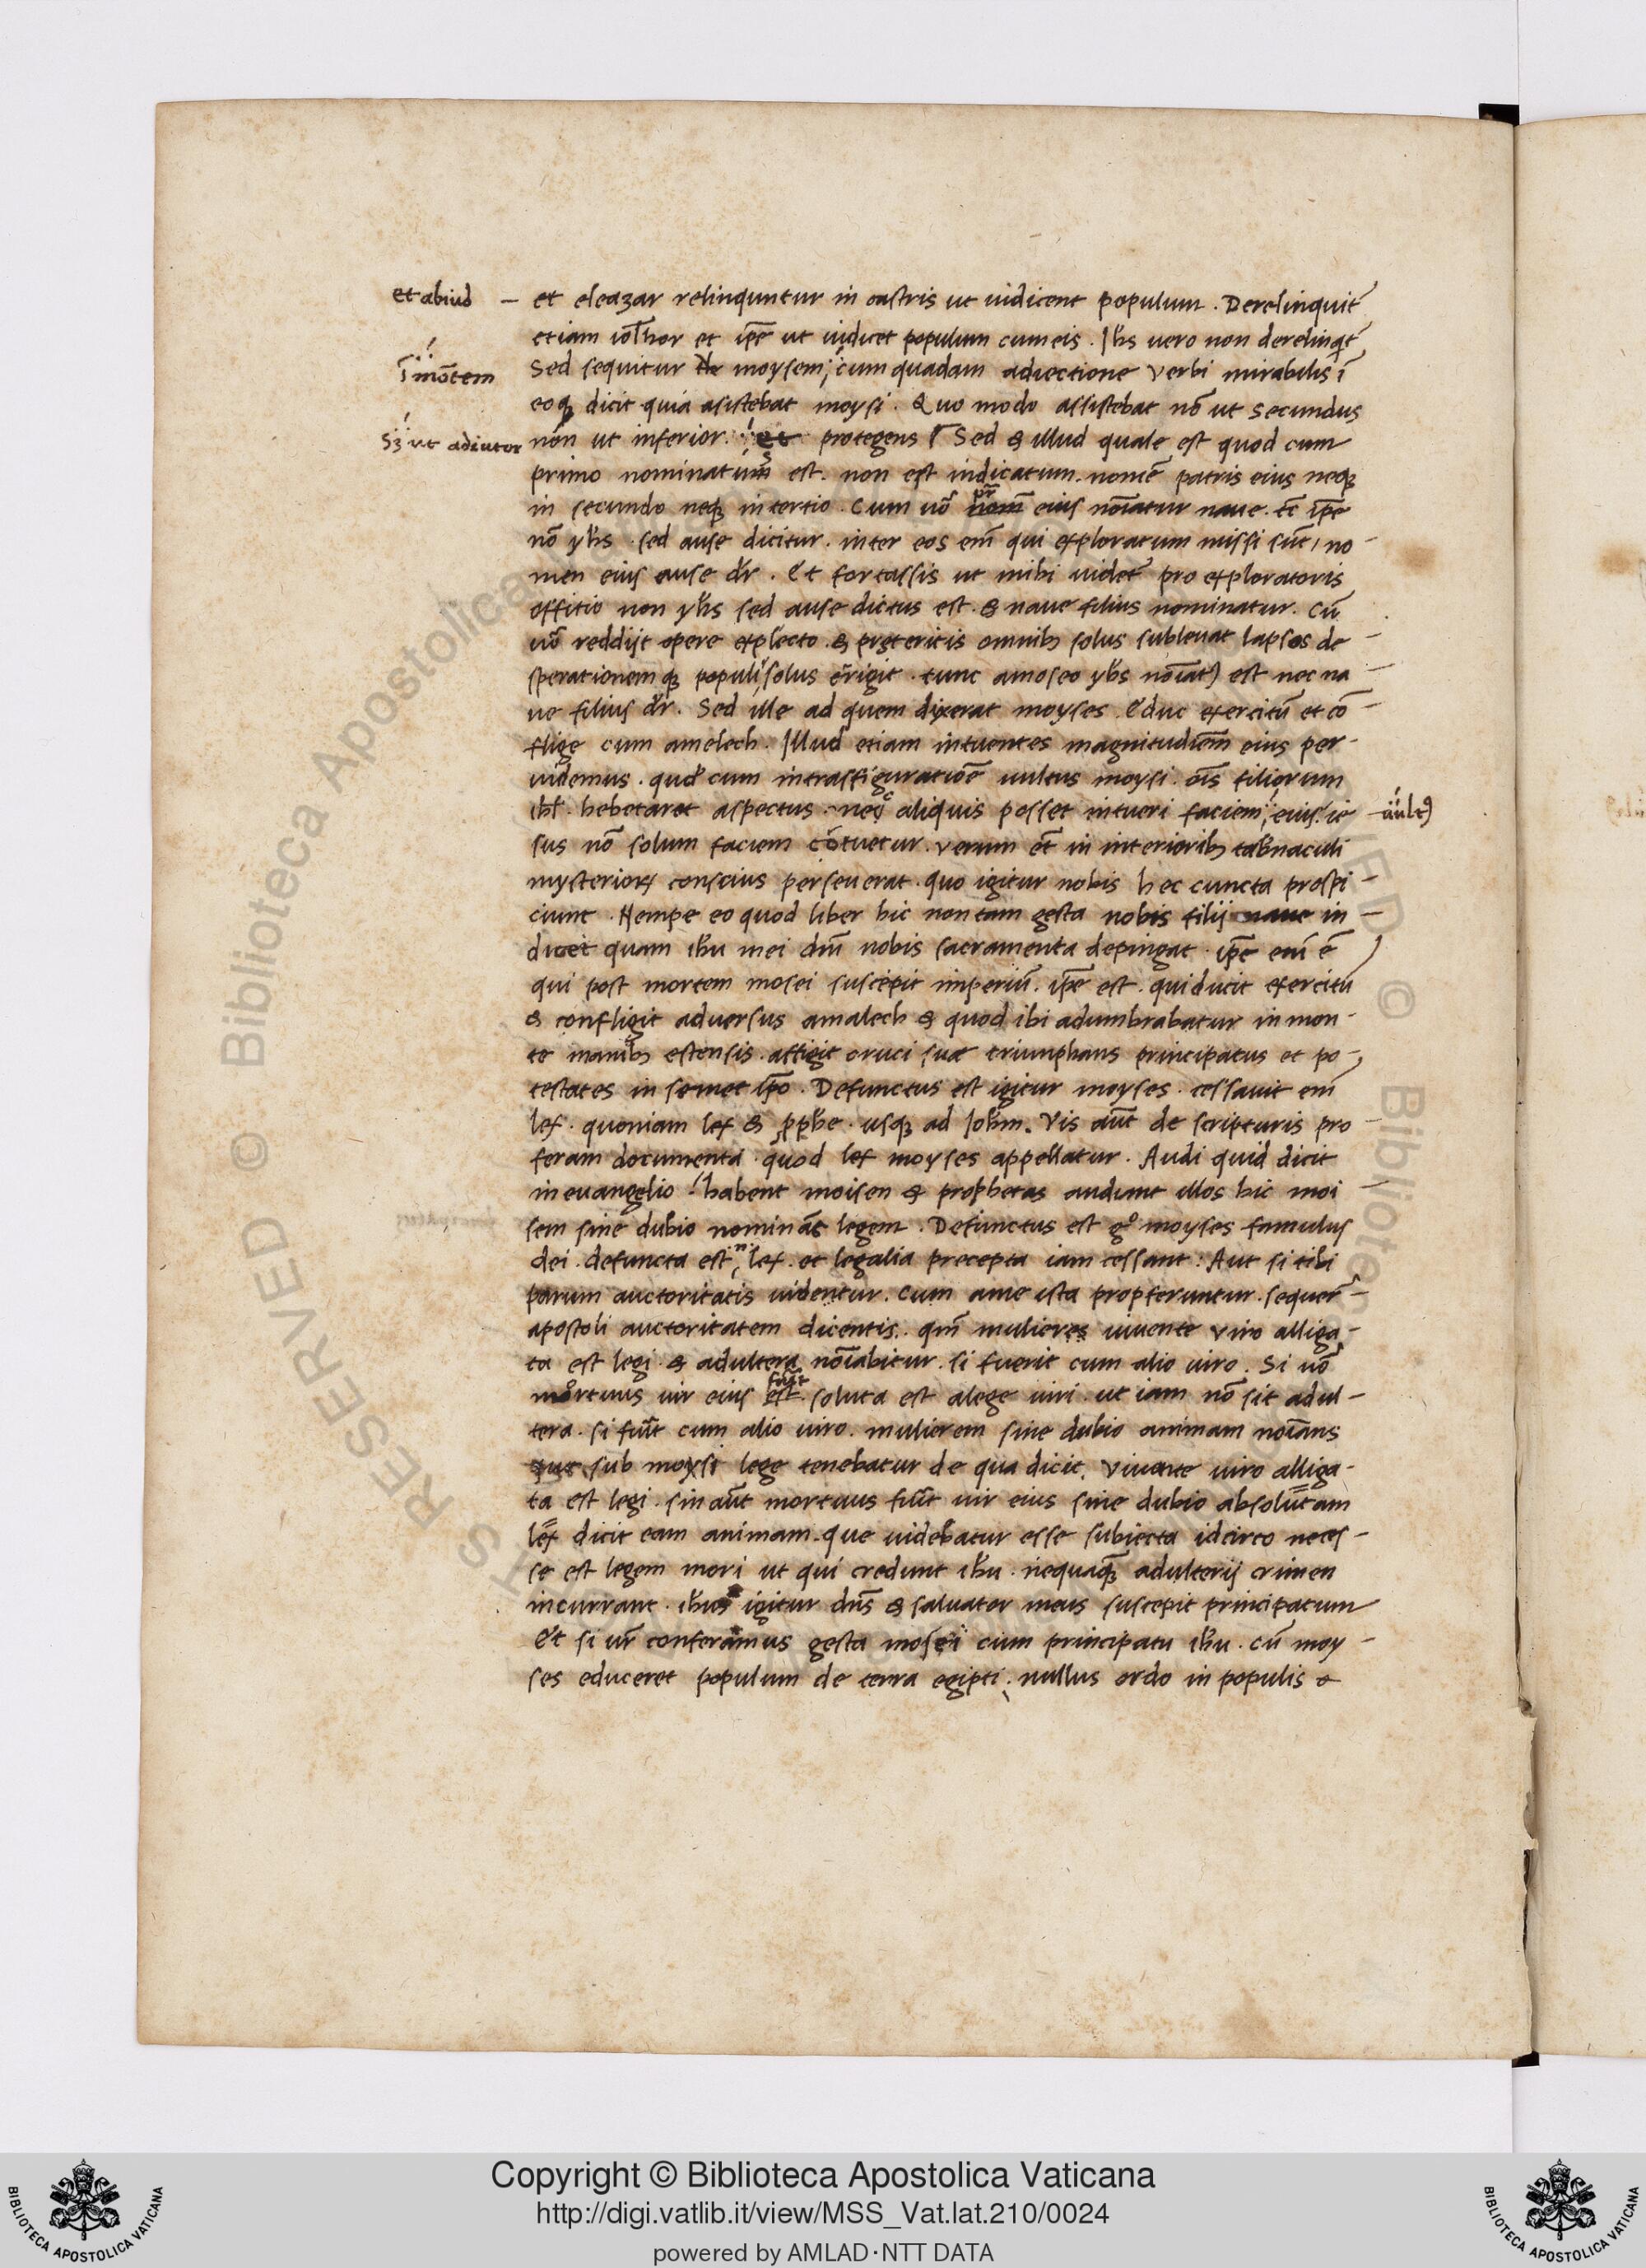 et abiud — et eleazar relinquntur in castris ut iudicent populum . Derelinquit᷑
etiam iothor et ip̄e ut iudicet populum cum eis . Ihs uero non derelinqit᷑
ī mōtem Sed sequitur moysem, cum quadam adiectione verbi mirabilis ī
eoqꝫ dicit quia asistebat moysi . Quo modo assistebat nō ut secundus
sꝫ ut adiutor non ut inferior . et protegens Sed & illud quale est quod cum
primo nominatum est . non est indicatum . nomē patris eius neqꝫ
in secundo neqꝫ in tertio . Cum uō nom̄ pr̄ eius noīatur naue . tc̄ ip̄e
nō yh̄s . sed ause dicitur . inter eos em̄ qui exploratum missi sūt, no-
men eius ause dr̄ . Et fortassis ut mihi uidet᷑ pro exploratoris
offitio non yh̄s sed ause dictus est . & naue filius nominatur . Cū
uō reddijt opere explecto . & pręteritis omnibꝫ solus subleuat lapsos de-
sperationemqꝫ populi solus erigit . tunc amoseo yh̄s noīatꝯ est nec na-
ue filius dr̄ . Sed ille ad quem dixerat moyses . Educ exercitū et cō-
flige cum amelech . Illud etiam intuentes magnitudiēm eius per-
uidemus . qud̄ cum in trasfiguratiōe uultus moysi . oīs filiorum
ihl̄ . hebetaret aspectus . nec aliquis posset intueri faciem, eius . ie- uultꝯ
sus nō solum faciem cōtuetur . verum et̄ in interioribꝫ tab̄naculi
mysterioꝝ conscius perseuerat . quo igitur nobis hec cuncta prospi-
ciunt . Nempe eo quod liber hic non tam gesta nobis filij naue in-
dicet quam ihu mei dn̄i nobis sacramenta depingat . ip̄e em̄ ē
qui post mortem mosei suscepit imperiū . ip̄e est . qui ducit exercitū
& confligit aduersus amalech & quod ibi adumbrabatur in mon-
te manibꝫ estensis . affigit cruci suæ triunphans principatus et po-
testates in semet ip̄o . Defunctus est igitur moyses . cessauit em̄
lex . quoniam lex & ꝓph̄e . usqꝫ ad Ioh̄m . Vis aūt de scripturis pro-
feram documenta quod lex moyses appellatur . Audi quid dicit
in euangelio habent moisen & prophetas audiunt illos hic moi-
sem sine dubio nominat legem . Defunctus est gº moyses famulus
dei . defuncta est lex . et legalia precepta iam cessant . Aut si tibi
parum auctoritatis uidentur . cum a me ista propferuntur . sequer̄-
apostoli auctoritatem dicentis . qm̄ mulieres uiuente viro alliga-
ta est legi . & adultera noīabitur . si fuerit cum alio uiro . Si uō
mortuus uir eius est fuit soluta est a lege uiri . ut iam nō sit adul-
tera . si fu͛it cum alio uiro . mulierem sine dubio animam noīans
que sub moysi lege tenebatur de qua dicit . viuente uiro alliga-
ta est legi . sin aūt mortuus fu͛it uir eius sine dubio absolutam
lex dicit eam animam . que uidebatur esse subiecta idcirco neces-
se est legem mori ut qui credunt ihu . nequaqꝫ adulterij crimen
incurrant . ihus igitur dn̄s & saluator meus suscepit principatum
Et si ur̄ conferamus gesta mosei cum principatu ihu . cū moy-
ses educeret populum de terra egipti . nullus ordo in populis e
RESERVED © Biblioteca Apostolica
© Biblioteca
Copyright © Biblioteca Apostolica Vaticana
http://digi.vatlib.it/view/MSS_Vat.lat.210/0024
powered by AMLAD·NTT DATA
BIBLIOTECA APOSTOLICA VATICANA
BIBLIOTECA APOSTOLICA VATICANA